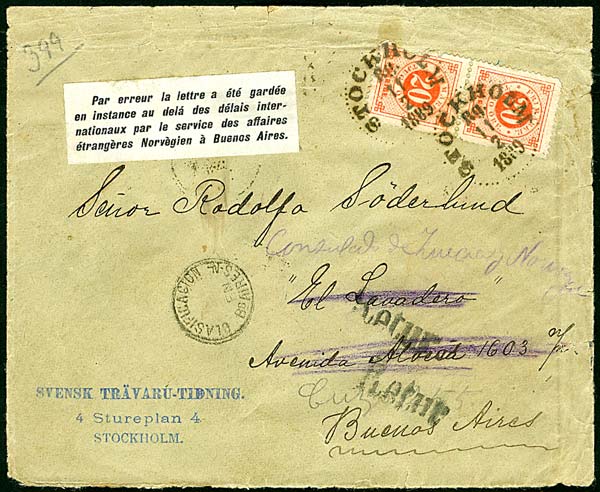 394
Par erreur la lettre a été gardée
en instance au delà des délais inter-
nationaux par le service des affaires
étrangères Norvègien à Buenos Aires.
STOCKHOLM
1889
20
STOCKHOLM
1889
20
Señor Rodolfo Söderlund
Consulado de Suecia y Noruega
"El Lavadero"
Retur
Avenida Alvear 1603
Retur
Buenos Aires
CLASIFICACION
BS AIRES
SVENSK TRÄVARU-TIDNING.
4 Stureplan 4
STOCKHOLM.